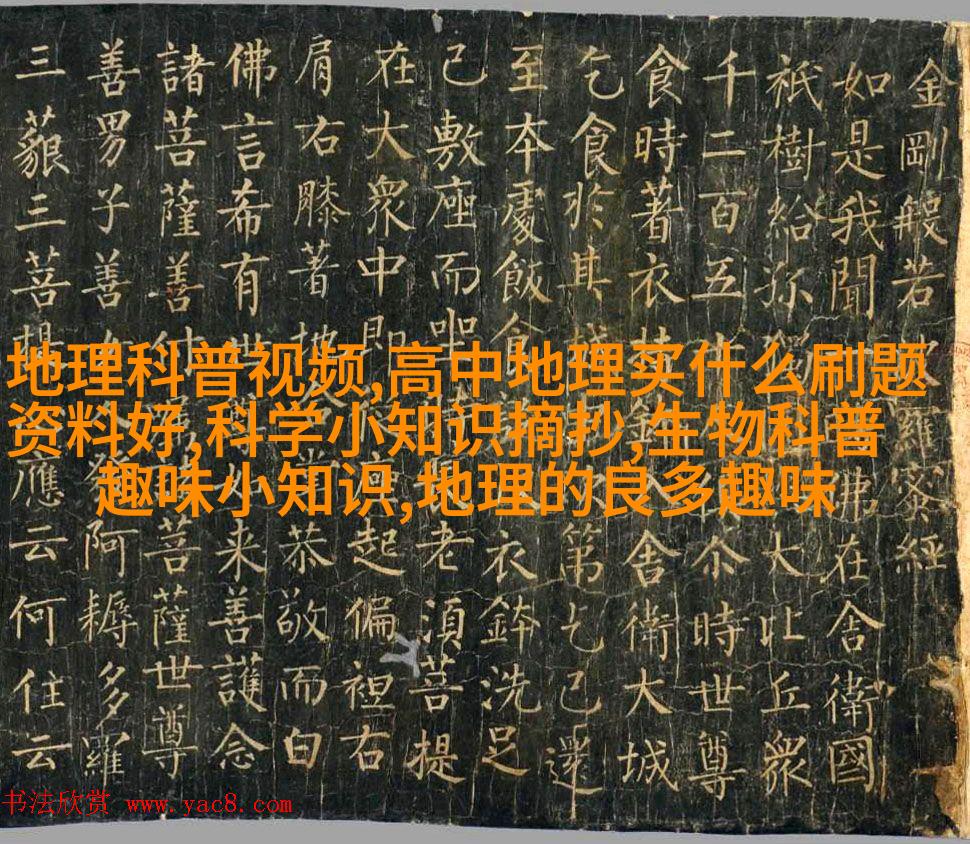 金剛般若羅蜜經
如是我聞佛在舍衛國
祇樹給孤大比丘衆
千二百五尒時世尊
食時著衣持舍衛大城
乞食於其城第乞已還
至本處飯食衣鉢洗足
已敷座而坐老湏菩提
在大衆中即起偏袒右
肩右膝著地恭敬而白
佛言希有世来善護念
諸菩薩善付菩薩世尊
善男子善女阿耨多羅
三藐三菩提應云何住云
地理科普视频,高中地理买什么刷题
资料好,科学小知识摘抄,生物科普
趣味小知识,地理的良多趣味
书法欣赏 www.yac8.com